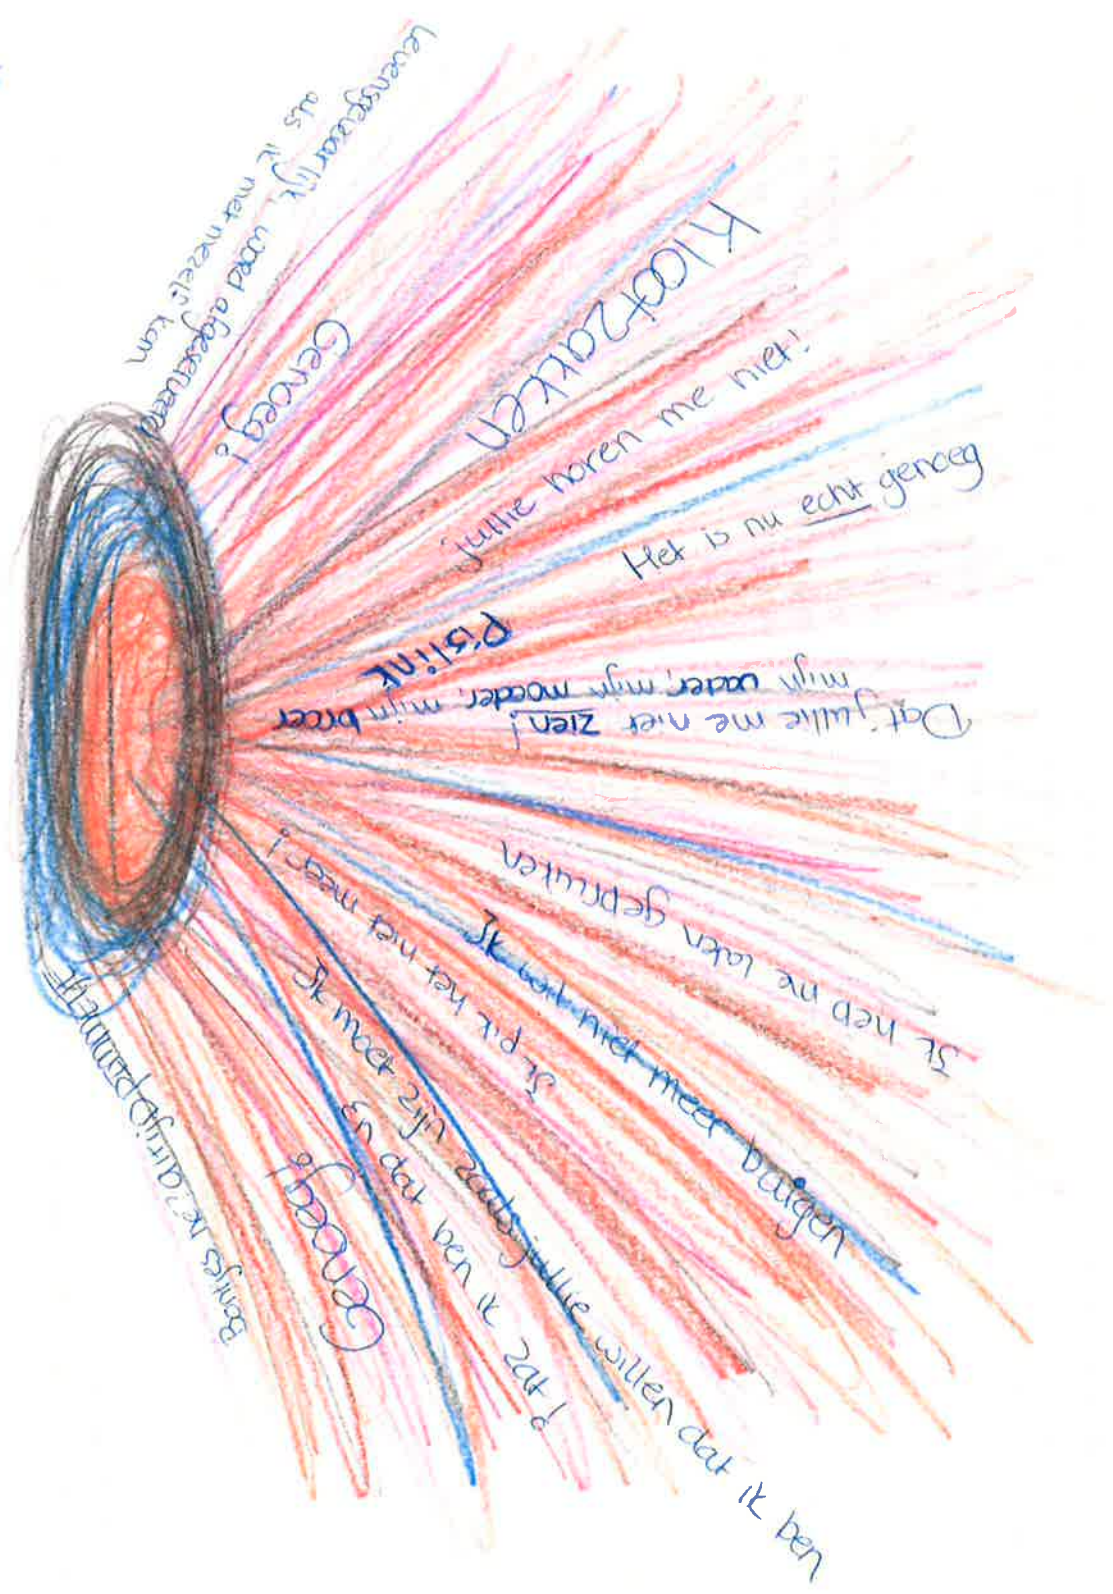 levensgevaarlijk, word afgeserveerd
als ik met mezelf kan
Genoeg!
Klootzakken
jullie horen me niet!
Het is nu echt genoeg
Pislink
Dat jullie me niet zien!
mijn vader, mijn moeder, mijn broer
Ik heb me laten gebruiken
Ik kan niet meer buigen
Ik pik het niet meer!
Ik moet zijn zoals jullie willen dat ik ben
en dat ben ik zat!
Genoeg!